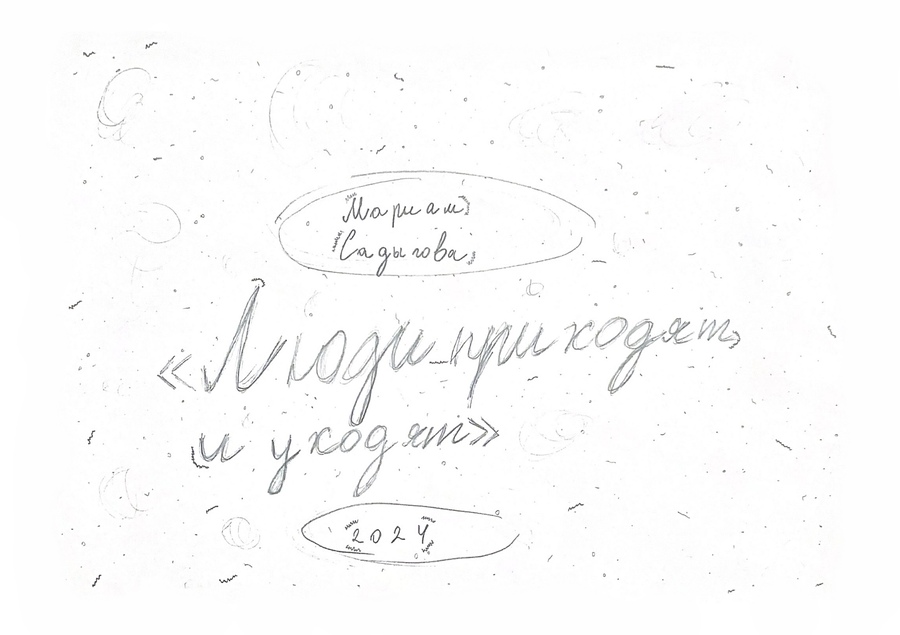 Мариам
Садыгова
«Люди приходят
и уходят»
2024